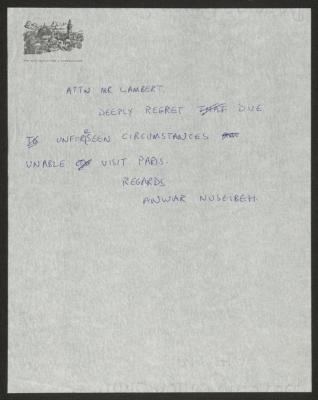 ATTN MR LAMBERT.
DEEPLY REGRET THAT DUE
TO UNFORESEEN CIRCUMSTANCES
UNABLE TO VISIT PARIS.
REGARDS
ANWAR NUSEIBEH.